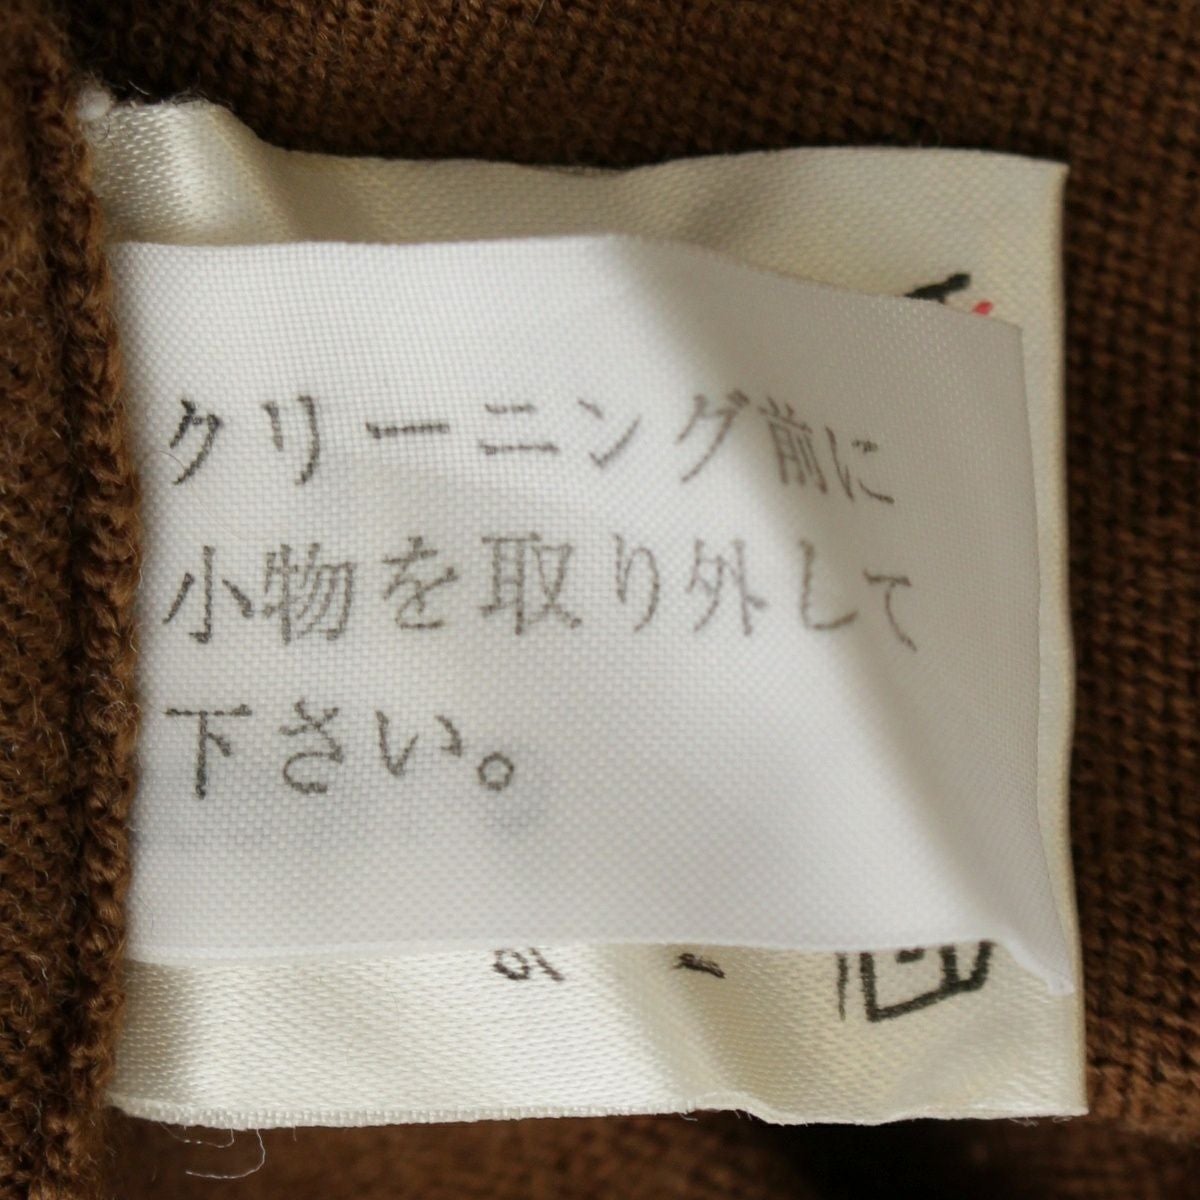 クリーニング前に
小物を取り外して
下さい。